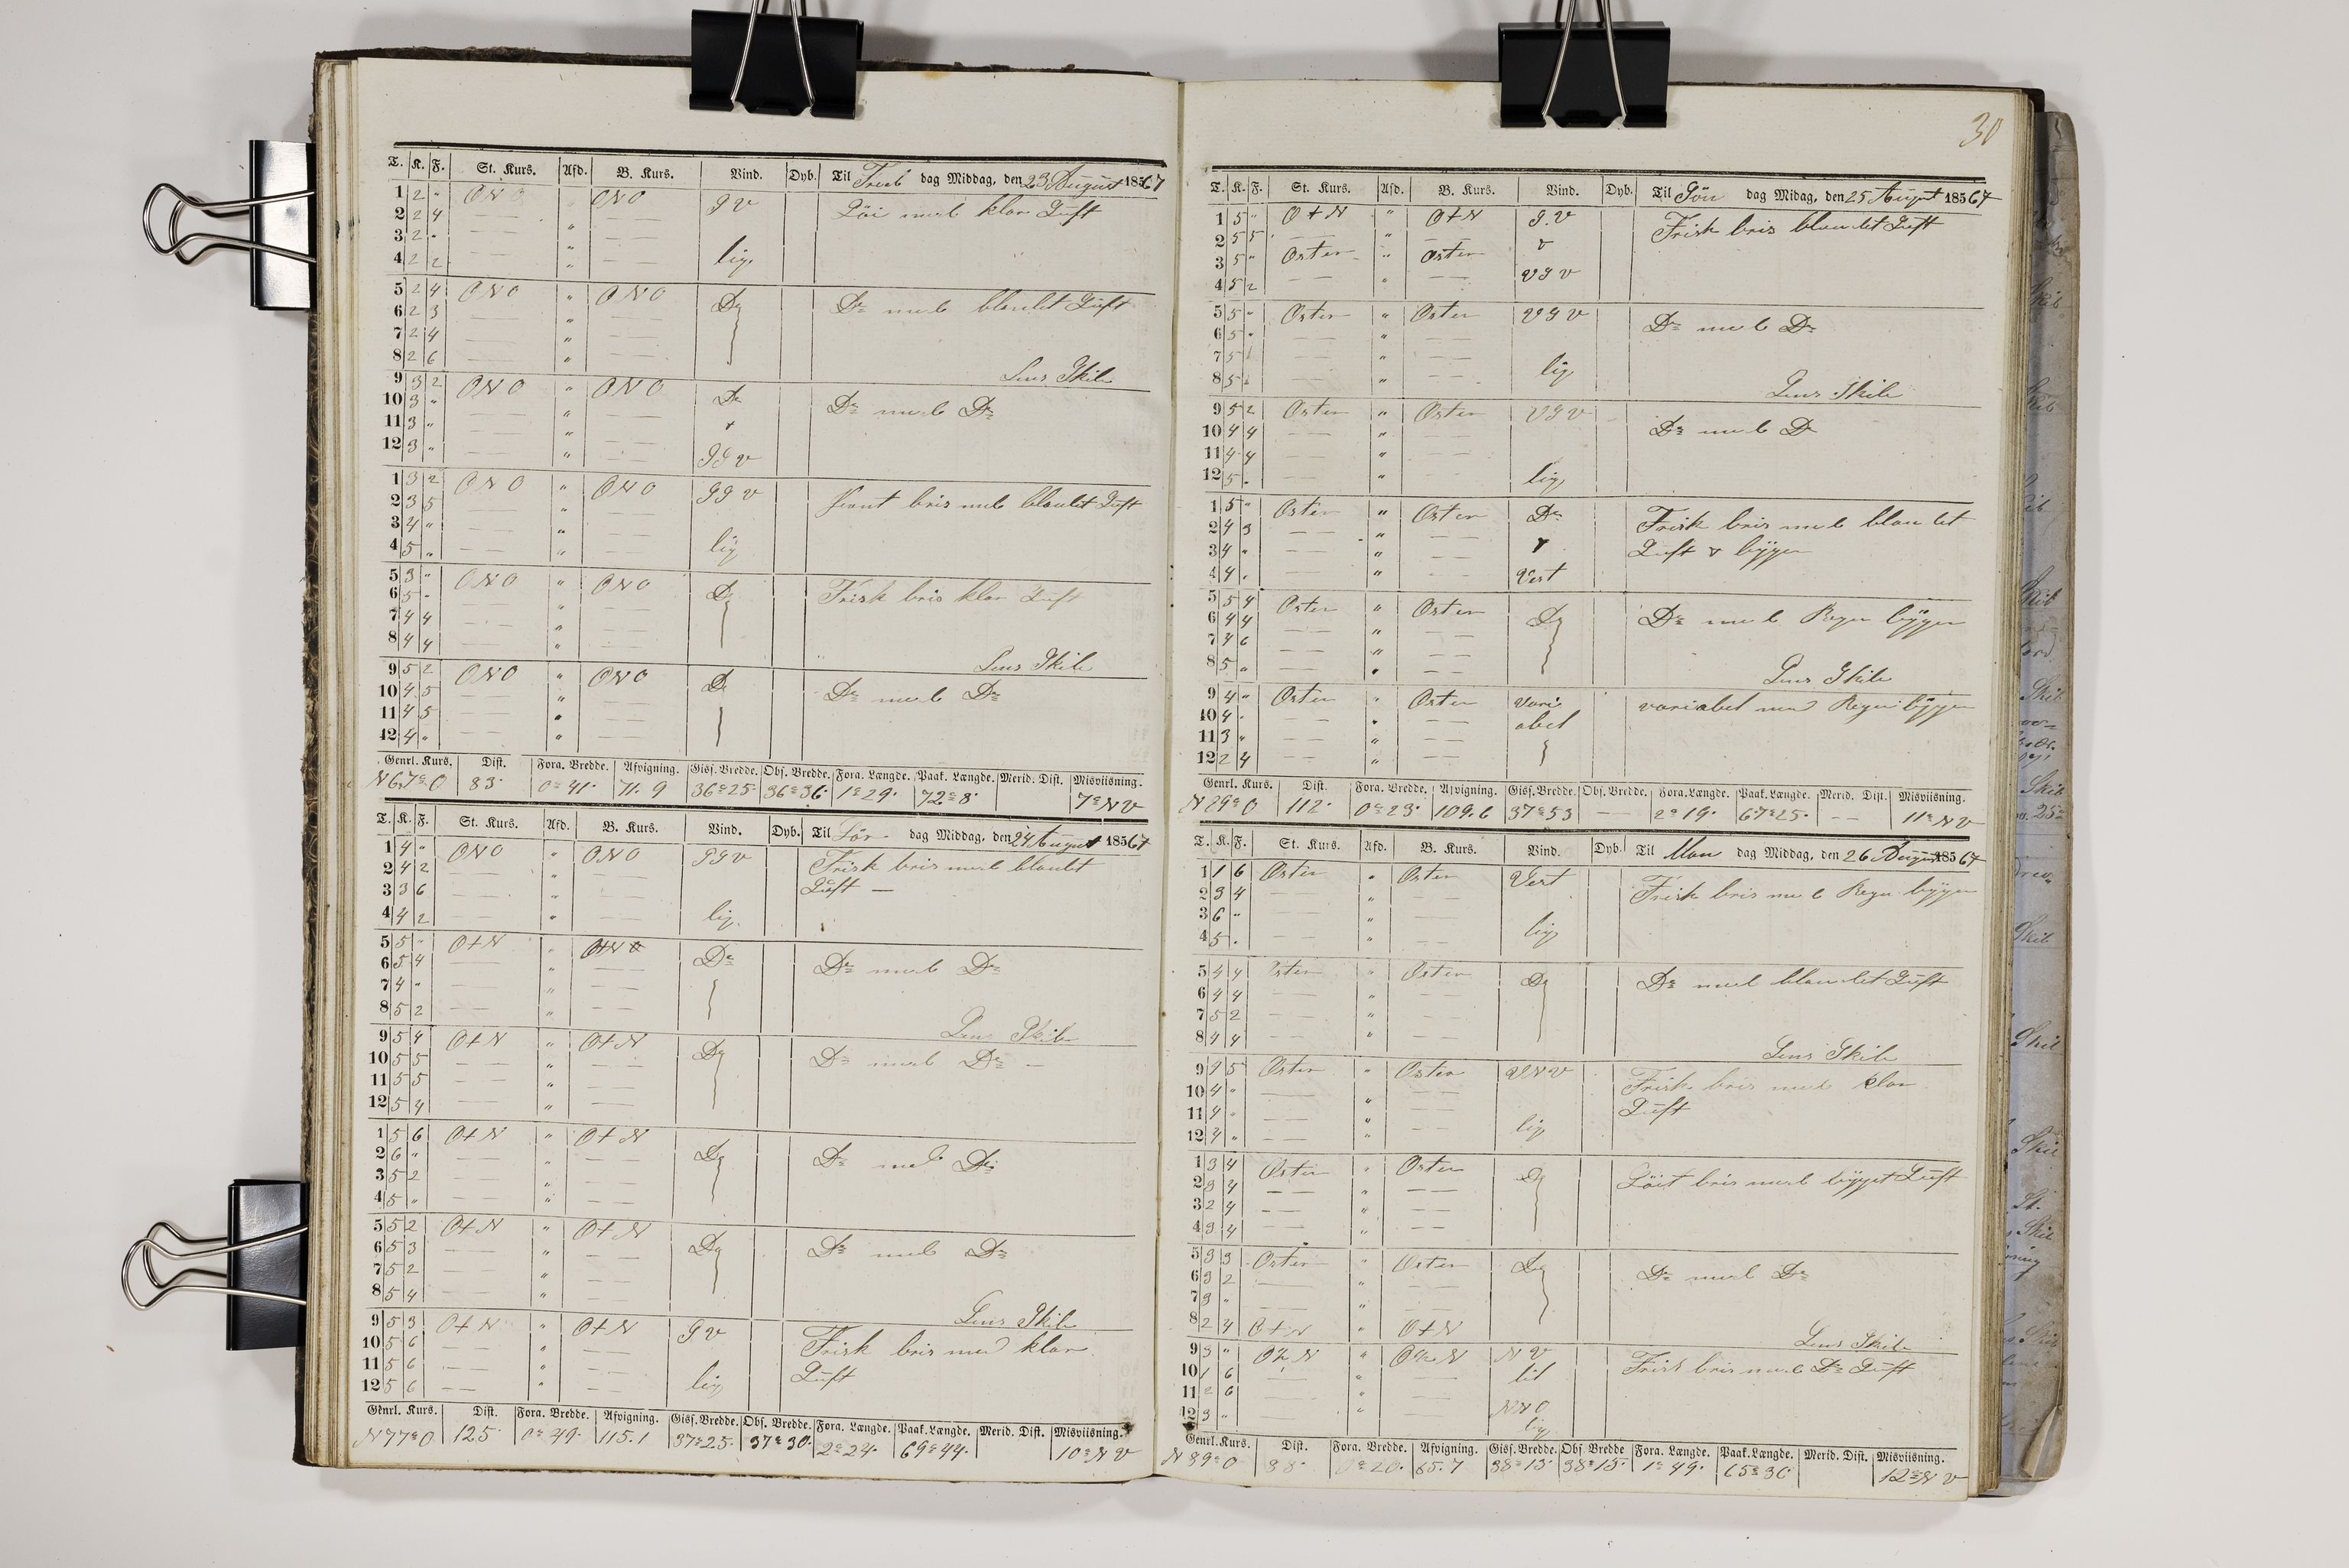 T. K. F. St. Kurs. Afd. B. Kurs. Vind. Dyb. Til Fred dag Middag, den 23 August 1867
1 2 " ONO ONO S V Löi med klar Luft
2 2 4 — — " — —
3 2 " — — " — —
4 2 2 — — " — — lig.
5 2 4 ONO " ONO Do Do med blandet Luft
6 2 3 — — " — —
7 2 4 — — " — —
8 2 6 — — " — — Lens Skib
9 3 2 ONO " ONO Do Do med Do
10 3 " — — " — —
11 3 " — — " — —
12 3 " — — " — — SSV
1 3 2 ONO " ONO SSV bris med blandet Luft
2 3 5 — — " — —
3 4 " — — " — —
4 5 " — — " — — lig
5 3 " ONO " ONO Do Frisk bris klar Luft
6 5 " — — " — —
7 4 4 — — " — —
8 4 4 — — " — — Lens Skib
9 5 2 ONO " ONO Do Do med Do
10 4 5 — — " — —
11 4 5 — — " — —
12 4 " — — " — —
Genrl. Kurs. Dist. Fora. Bredde. Afvigning. Gisf. Bredde. Obs. Bredde. Fora. Længde. Paak. Længde. Merid. Dist. Misviisning.
N 67° O 83 0° 41 71.9 36° 25 36° 36 1° 29 72° 8 7° NV
T. K. F. St. Kurs. Afd. B. Kurs. Vind. Dyb. Til Lör dag Middag, den 24 August 1867
1 4 " ONO " ONO SSV Frisk bris med blandet
2 4 2 — — " — — Luft —
3 3 6 — — " — —
4 4 2 — — " — — lig.
5 5 " O t N " O t N Do Do med Do
6 5 4 — — " — —
7 4 " — — " — —
8 5 2 — — " — — Lens Skib
9 5 4 O t N " O t N Do Do med Do —
10 5 5 — — " — —
11 5 5 — — " — —
12 5 4 — — " — —
1 5 6 O t N " O t N Do Do med Do
2 6 " — — " — —
3 5 2 — — " — —
4 5 " — — " — —
5 5 2 O t N " O t N Do Do med Do
6 5 3 — — " — —
7 5 2 — — " — —
8 5 4 — — " — — Lens Skib
9 5 3 O t N " O t N S V Frisk bris med klar
10 5 6 — — " — — Luft
11 5 6 — — " — —
12 5 6 — — " — — lig
Genrl. Kurs. Dist. Fora. Bredde. Afvigning. Gisf. Bredde. Obs. Bredde. Fora. Længde. Paak. Længde. Merid. Dist. Misviisning.
N 77° O 125 0° 29 115.1 37° 25 37° 30 2° 24 69° 44 10° NV
30
T. K. F. St. Kurs. Afd. B. Kurs. Vind. Dyb. Til Sön dag Midag, den 25 August 1867
1 5 " O t N " O t N S.V Frisk bris blandet Luft
2 5 5 — — " — — v
3 5 " Osten " Osten
4 5 2 — " — — VSV
5 5 " Osten " Osten VSV Do med Do
6 5 " — — " — —
7 5 — — " — — lig
8 5 — — " — — Lens Skib
9 5 2 Osten " Osten VSV Do med Do
10 4 4 — — " — —
11 4 4 — — " — —
12 5 " — — " — — lig
1 5 " Osten " Osten Do Frisk bris med blandet
2 4 3 — — " — — Luft & byger
3 4 " — — " — —
4 4 " — — " — — Vest
5 5 4 Osten " Osten Do Do med Regn byger
6 4 4 — — " — —
7 4 6 — — " — —
8 5 " — — " — — Lens Skib
9 4 " Osten " Osten vari variabel med Regn byger
10 4 " — — " — — abel
11 3 " — — " — —
12 2 4 — — " — —
Genrl. Kurs. Dist. Fora. Bredde. Afvigning. Gisf. Bredde. Obs. Bredde. Fora. Længde. Paak. Længde. Merid. Dist. Misviisning.
N 29° O 112 0° 23 109.6 37° 53 — 2° 19 67° 25 — — 11° NV
T. K. F. St. Kurs. Afd. B. Kurs. Vind. Dyb. Til Man dag Middag, den 26 August 1867
1 1 6 Osten " Osten Vest Frisk bris med Regn byger
2 3 4 — — " — —
3 6 " — — " — — lig
4 5 " — — " — —
5 4 4 Osten " Osten Do Do med blandet Luft
6 4 4 — — " — —
7 5 2 — — " — —
8 4 4 — — " — — Lens Skib
9 5 Osten " Osten VNV Frisk bris med klar
10 4 " — — " — — Luft
11 4 " — — " — —
12 4 " — — " — — lig
1 3 4 Osten " Osten Do Löit bris med bygget Luft
2 3 4 — — " — —
3 2 4 — — " — —
4 3 4 — — " — —
5 3 3 Osten " Osten Do Do med Do
6 3 2 — — " — —
7 3 " — — " — —
8 2 4 O t N " O t N Lens Skib
9 3 " O ½ N " O ½ N N V Frisk bris med Do Luft
10 1 6 — — " — — til
11 2 6 — — " — —
12 3 " — — " — — NNO
lig
Genrl. Kurs. Dist. Fora. Bredde. Afvigning. Gisf. Bredde. Obs. Bredde Fora. Længde. Paak. Længde. Merid. Dist. Misviisning.
N 89° O 88 0° 20 85.7 38° 13 38° 15 1° 49 65° 36 12° NV